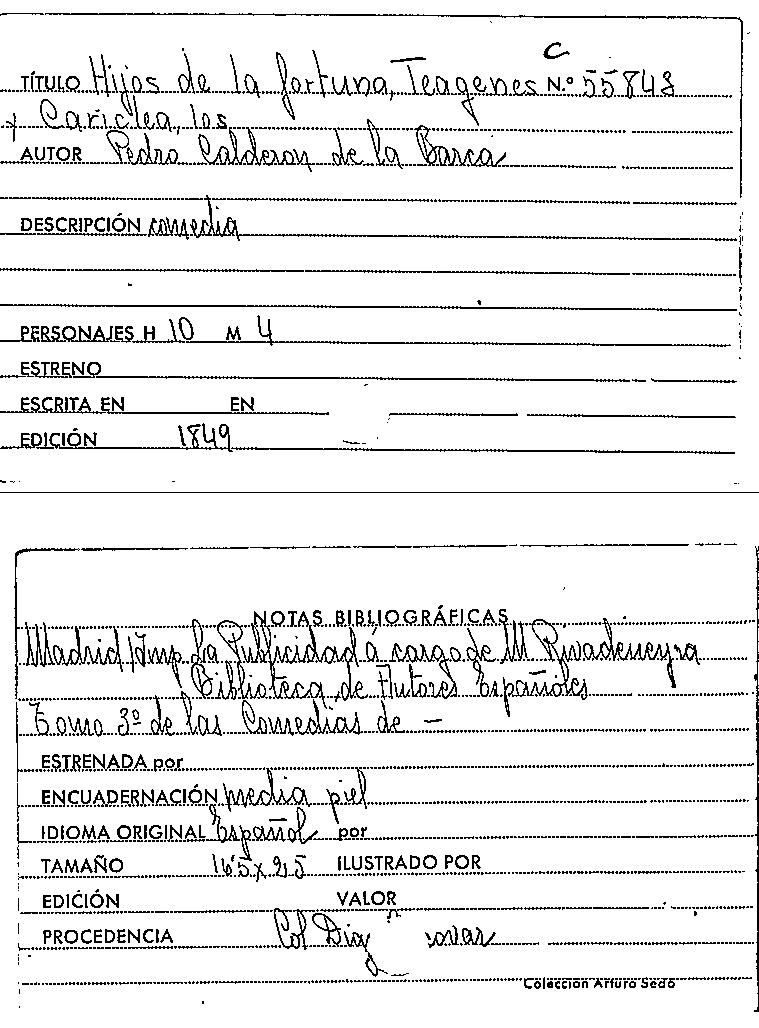 C
TÍTULO Hijos de la fortuna, Teagenes N.º 55848
y Cariclea, los
AUTOR Pedro Calderon de la Barca
DESCRIPCIÓN comedia
PERSONAJES H 10 M 4
ESTRENO
ESCRITA EN EN
EDICIÓN 1849
NOTAS BIBLIOGRÁFICAS
Madrid/Imp La Publicidad á cargo de M Rivadeneyra
Biblioteca de Autores Españoles
Tomo 3º de las Comedias de —
ESTRENADA por
ENCUADERNACIÓN media piel
IDIOMA ORIGINAL Español por
TAMAÑO 16'5 x 25 ILUSTRADO POR
EDICIÓN VALOR
PROCEDENCIA Col Diaz
Colección Arturo Sedó